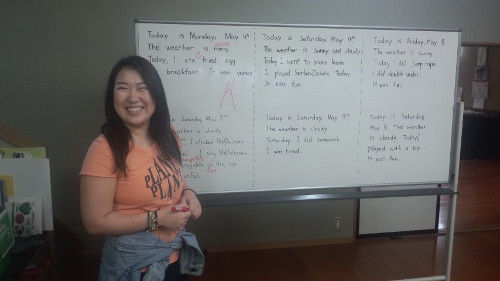 Today is Monday, May 4th
The weather is rainy
Today, I ate fried egg
breakfast. It was yummy
Today is Saturday, May 9th
The weather is sunny and cloudy
Today I went to piano lesson
I played today.
It was fun.
Today is Friday, May 8
The weather is sunny
Today I did jump rope.
I did double under.
It was fun.
Saturday, May 9th
is cloudy
I climbed
the top
Today is Saturday, May 9th
The weather is cloudy.
Yesterday, I did homework
I was tired.
Today is Saturday,
May 9. The weather
is cloudy. Today, I
played with a top.
It was fun.
PLANET
PLANET